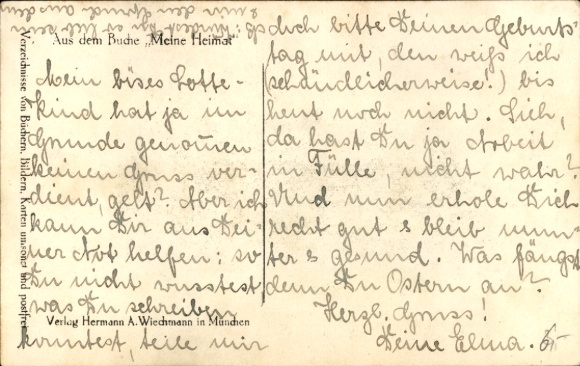 Aus dem Buche „Meine Heimat"
Mein böses Lotte-
kind hat ja im
Grunde genommen
keinen Gruss ver-
dient, gelt? Aber ich
kann Dir aus Dei-
ner Not helfen: so
Du nicht wusstest
was Du schreiben
konntest, teile mir
doch bitte Deinen Geburts-
tag mit, den weiß ich
(schändlicherweise!) bis
heut noch nicht. Sieh,
da hast Du ja Arbeit
in Fülle, nicht wahr?
Und nun erhole Dich
recht gut & bleib mun-
ter & gesund. Was fängst
denn Du Ostern an?
Herzl. Gruss!
Deine Elma.
Verlag Hermann A. Wiechmann in München
Verzeichnisse von Büchern, Bildern, Karten umsonst und postfrei